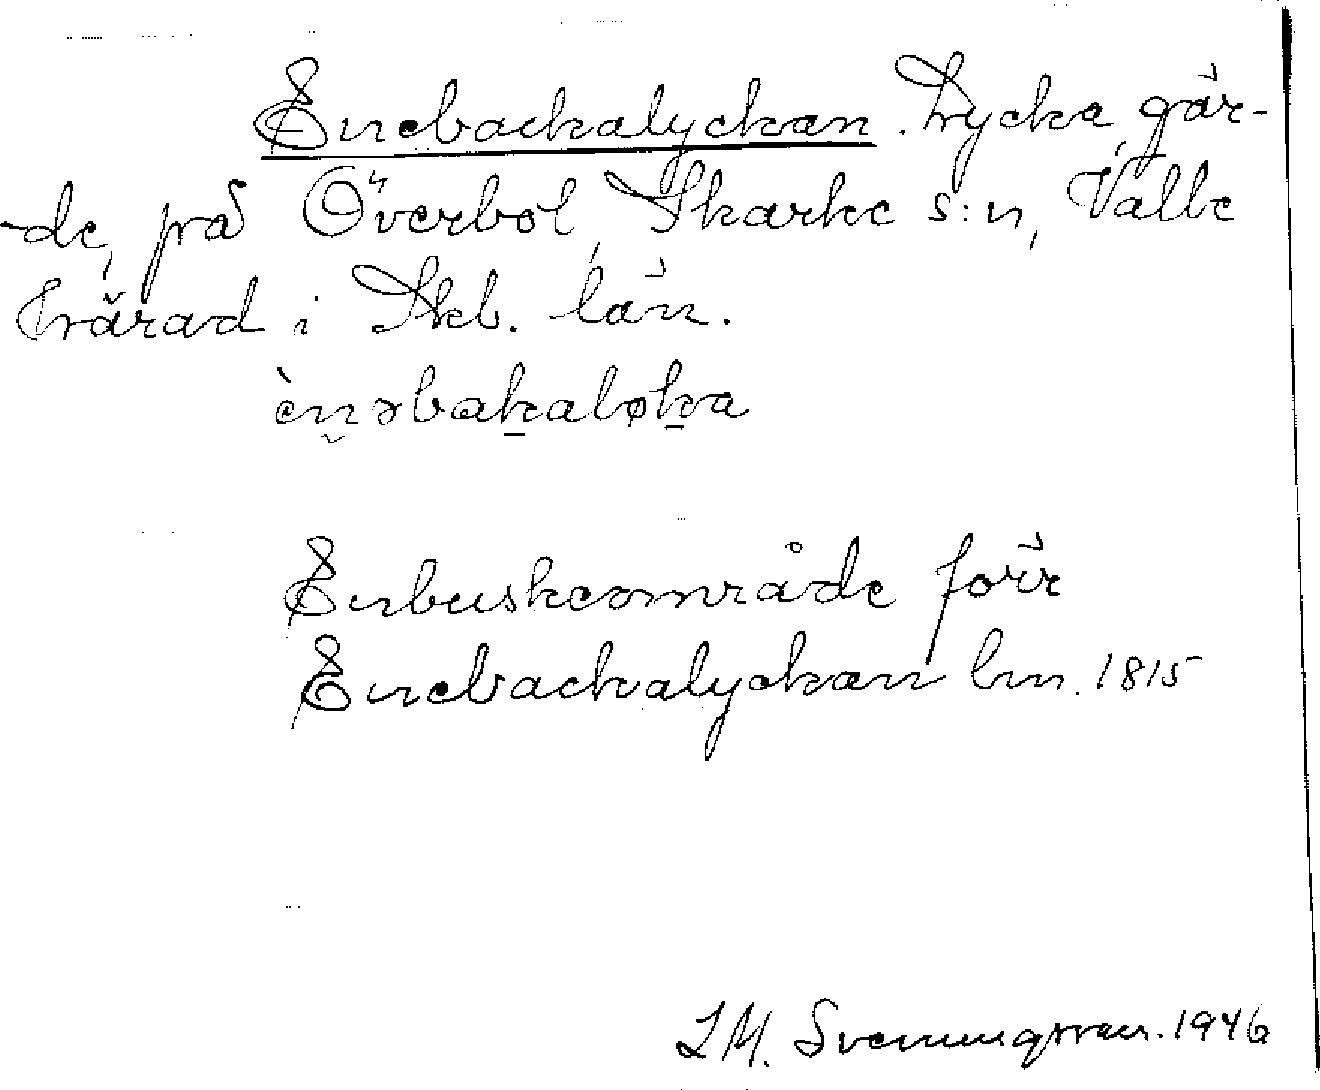 Enebackalyckan. Lycka, går-
de, på Överbol, Skarke s:n, Valle
härad i Skb. län.
Enbuskeområde förr
Enebackalyckan lm. 1815
L M. Svenningsson. 1946